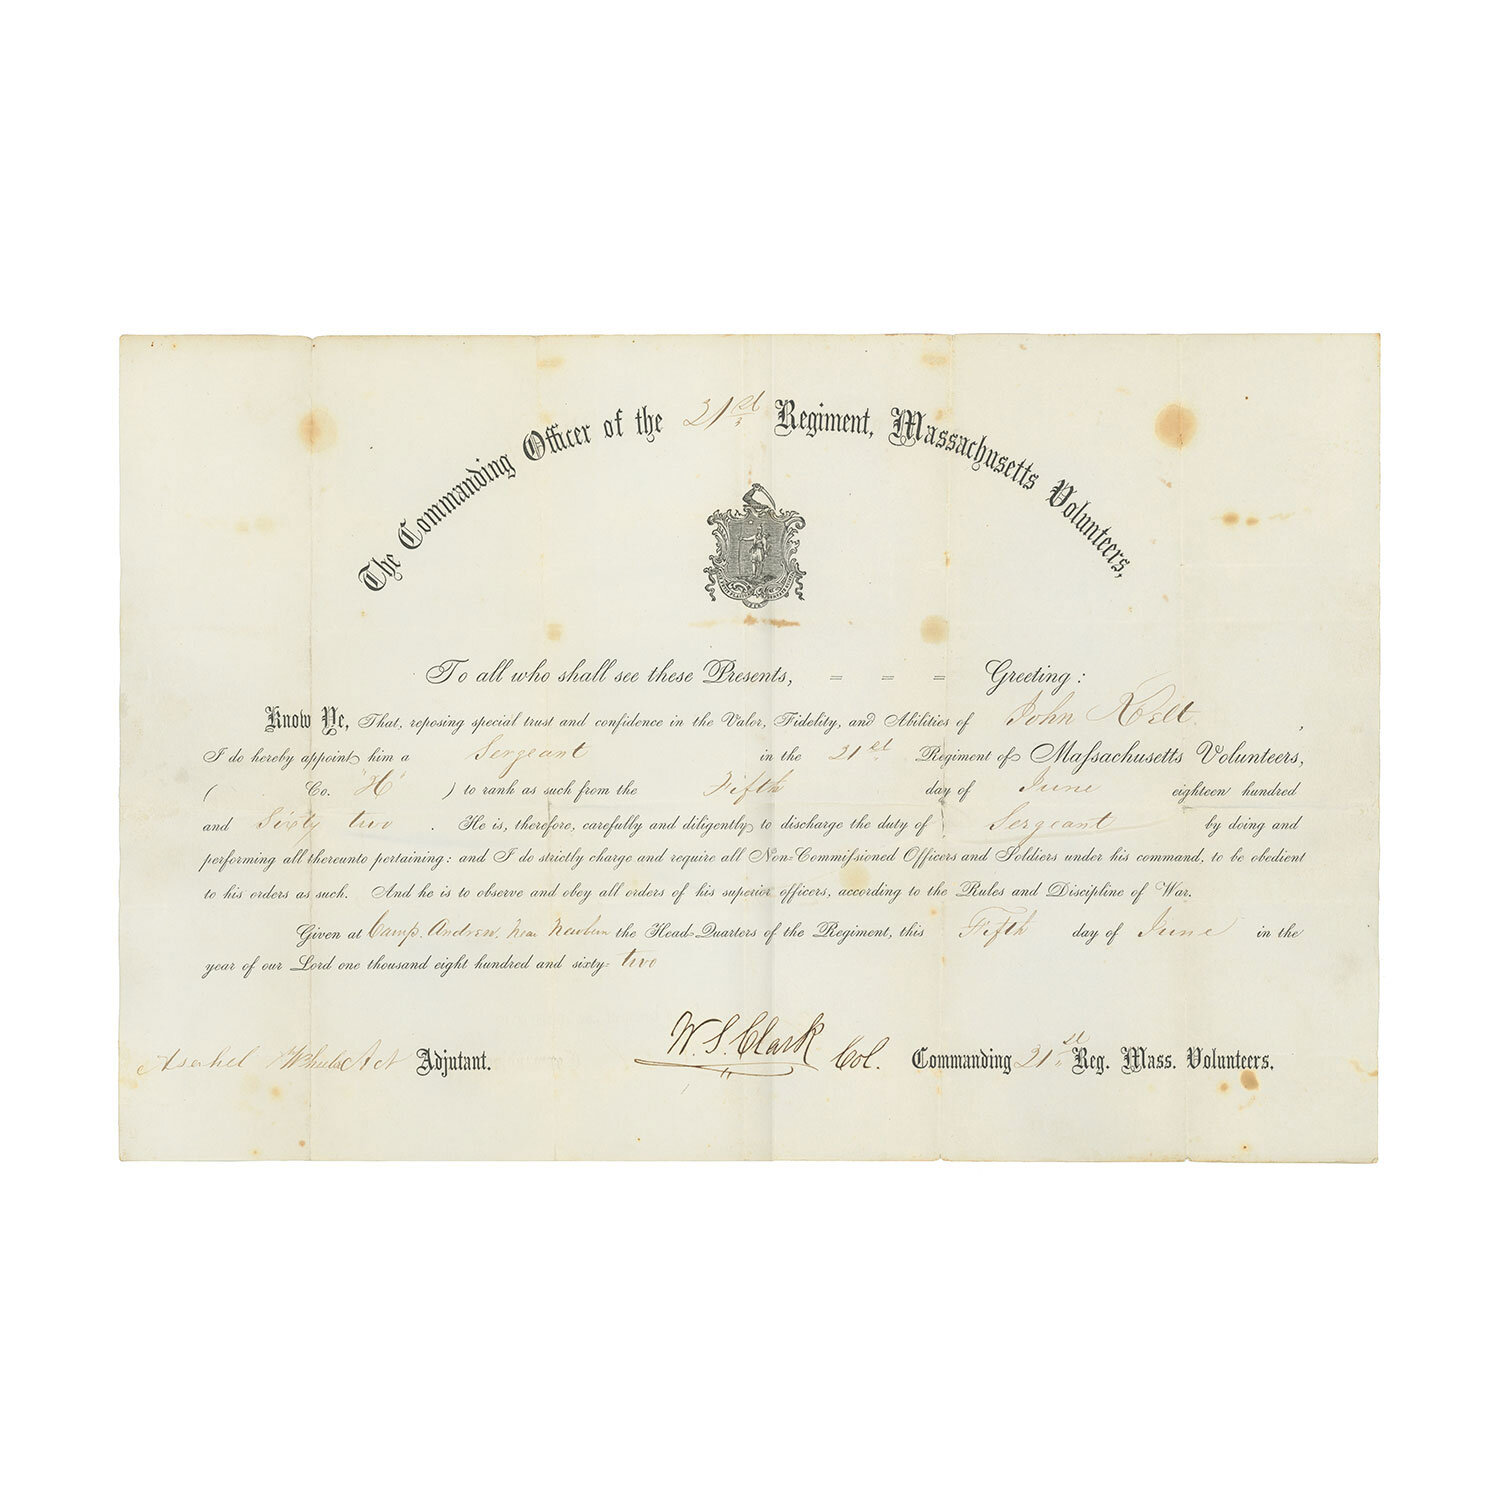 The Commanding Officer of the 21st Regiment, Massachusetts Volunteers,
To all who shall see these Presents, = = = Greeting:
Know Ye, That, reposing special trust and confidence in the Valor, Fidelity, and Abilities of John,
I do hereby appoint him a Sergeant in the 21st Regiment of Massachusetts Volunteers,
( Co. "H" ) to rank as such from the Fifth day of June eighteen hundred
and Sixty two. He is, therefore, carefully and diligently to discharge the duty of Sergeant by doing and
performing all thereunto pertaining: and I do strictly charge and require all Non-Commissioned Officers and Soldiers under his command, to be obedient
to his orders as such. And he is to observe and obey all orders of his superior officers, according to the Rules and Discipline of War.
Given at Camp Andrew. Near Newbern the Head-Quarters of the Regiment, this Fifth day of June in the
year of our Lord one thousand eight hundred and sixty-two
Asahel Act Adjutant. W. S. Clark Col. Commanding 21st Reg. Mass. Volunteers.